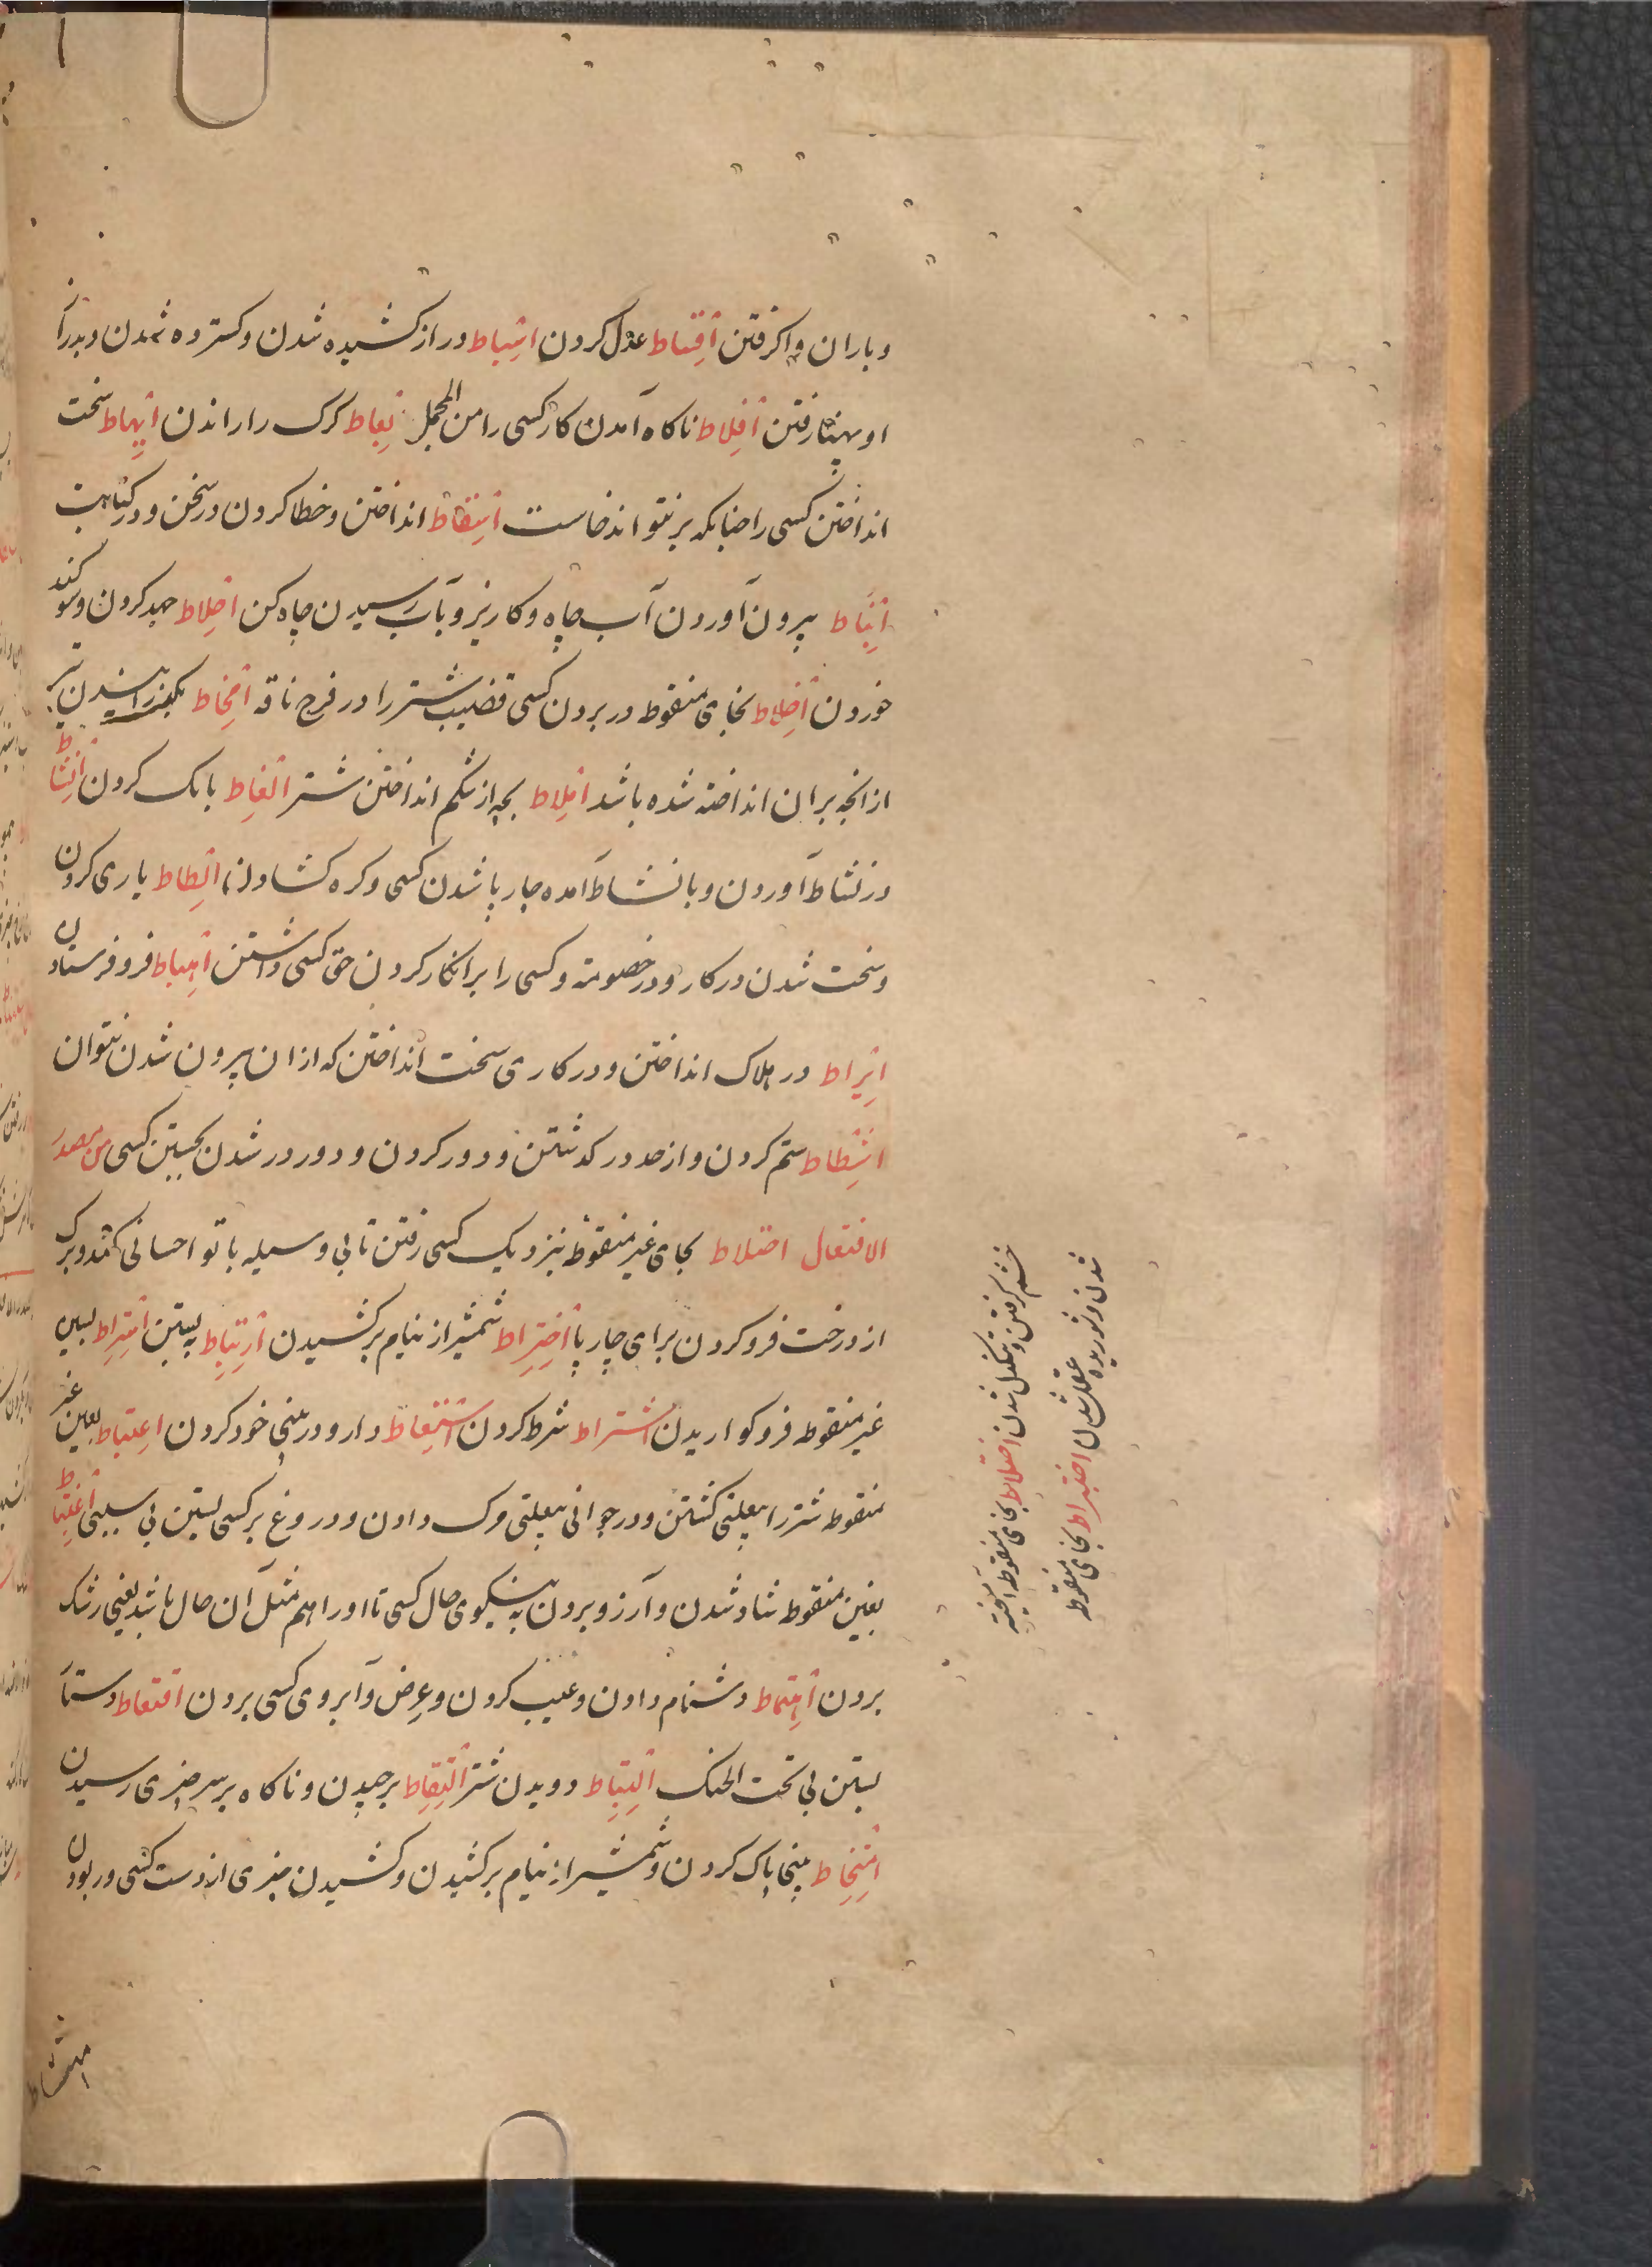 و باران واکرفتن اِقساط عدل کردن اِسْباط دراز کشیده شدن و کسترده شدن و بدرآ
او بهنا رفتن اِفلاط ناکاه آمدن کار کسی را من المجمل اِبعاط کرک را راندن اِبهاط سخت
انداختن کسی را جنانکه برنتواند خاست اِسقاط انداختن و خطا کردن در سخن و در کتابت
اِنباط بیرون آوردن آب چاه و کاریز و بآب رسیدن چاه کن اِحلاط جهد کردن و سوکند
خوردن اِخلاط بخای منقوط در بردن کسی قضیب شتر را در فرج ناقه اِمخاط بکذرانیدن تیر
از انچه بر ان انداخته شده باشد اِملاط بچه از شکم انداختن شتر اِلغاط بانک کردن اِنشاط
در نشاط آوردن و با نشاط آمده جار پا شدن کسی و کره کشادن اِلطاط یاری کردن
و سخت شدن در کار و در خصومة و کسی را بر انکار کردن حق کسی داشتن اِهباط فرو فرستادن
اِیراط در هلاک انداختن و در کاری سخت انداختن که از ان بیرون شدن نتوان
اِشطاط ستم کردن و از حد در کذشتن و دور کردن و دور در شدن بجستن کسی من مصدر
الافتعال احتلاط بحای غیر منقوط بنزدیک کسی رفتن تا بی وسیله با تو احسانی کند و برک
از درخت فرو کردن برای چارپا اِختراط شمشیر از نیام برکشیدن اِرتباط بستن اِستراط بسین
غیر منقوطه فرو کواریدن اشتراط شرط کردن اِستعاط دارو در بینی خود کردن اِعتباط بعین غیر
منقوطه شتر را بی علتی کشتن و در جوانی بی علتی مرک دادن و دروغ بر کسی بستن بی سببی اِغتباط
بغین منقوطه شاد شدن و آرزو بردن به نیکوی حال کسی تا او را هم مثل آن حال باشد یعنی رشک
بردن اِهتماط دشنام دادن و عیب کردن و عرض و آبروی کسی بردن اقتعاط دستار
بستن بی تحت الحنک اِلتباط دویدن شتر اِلتقاط برچیدن و ناکاه بر سر چیزی رسیدن
اِمتخاط بینی پاک کردن و شمشیر از نیام برکشیدن و کشیدن چیزی از دست کسی و ربودن
امتشاط
خشم کرفتن و تنکدل شدن اختلاط بخای منقوطه آمیخته
شدن و شوریده عقل شدن اختبراط بخای منقوطه